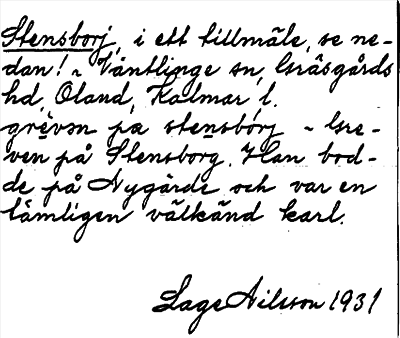 Stensborj, i ett tillmäle, se ne-
dan! ~ Våntlinge sn, Gräsgårds
hd, Öland, Kalmar l.
grēvən pa stensbōrj ~ Gre-
ven på Stensborg. Han bod-
de på Nygärde och var en
tämligen välkänd karl.
Lage Nilsson 1931